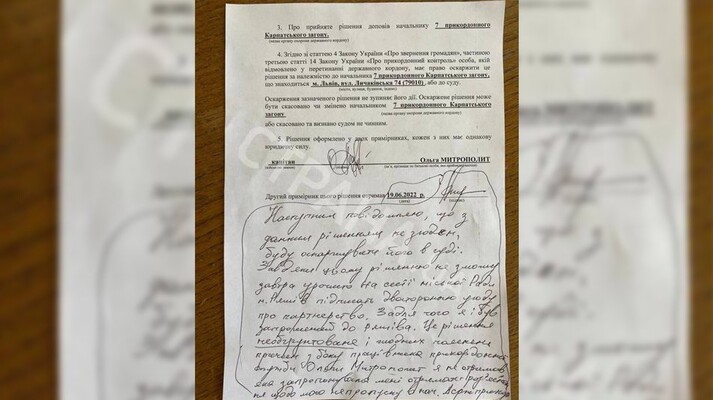 3. Про прийняте рішення доповів начальнику 7 прикордонного
Карпатського загону.
(назва органу охорони державного кордону)
4. Згідно зі статтею 4 Закону України «Про звернення громадян», частиною
третьою статті 14 Закону України «Про прикордонний контроль» особа, якій
відмовлено у перетинанні державного кордону, має право оскаржити це
рішення за належністю до начальника 7 прикордонного Карпатського загону,
що знаходиться м. Львів, вул. Личаківська 74 (79010), або до суду.
(місто, вулиця, будинок, індекс)
Оскарження зазначеного рішення не зупиняє його дії. Оскаржене рішення може
бути скасовано чи змінено начальником 7 прикордонного Карпатського
загону
(назва органу охорони державного кордону)
або скасовано та визнано судом не чинним.
5. Рішення оформлено у двох примірниках, кожен з них має однакову
юридичну силу.
капітан Ольга МИТРОПОЛИТ
Другий примірник цього рішення отримав 19.06.2022 р.
(дата) (підпис)
Наступним повідомляю, що з
даним рішенням не згоден,
буду оскаржувати його в суді.
Завдяки цьому рішенню не зможу
завтра урочисто на сесії міської Ради
м. Ряшів підписати двосторонню угоду
про партнерство. Задля чого я і був
запрошений до Ряшіва. Це рішення
необґрунтоване і жодних пояснень
причин з боку працівника прикордонної
служби Ольги Митрополит я не отримав